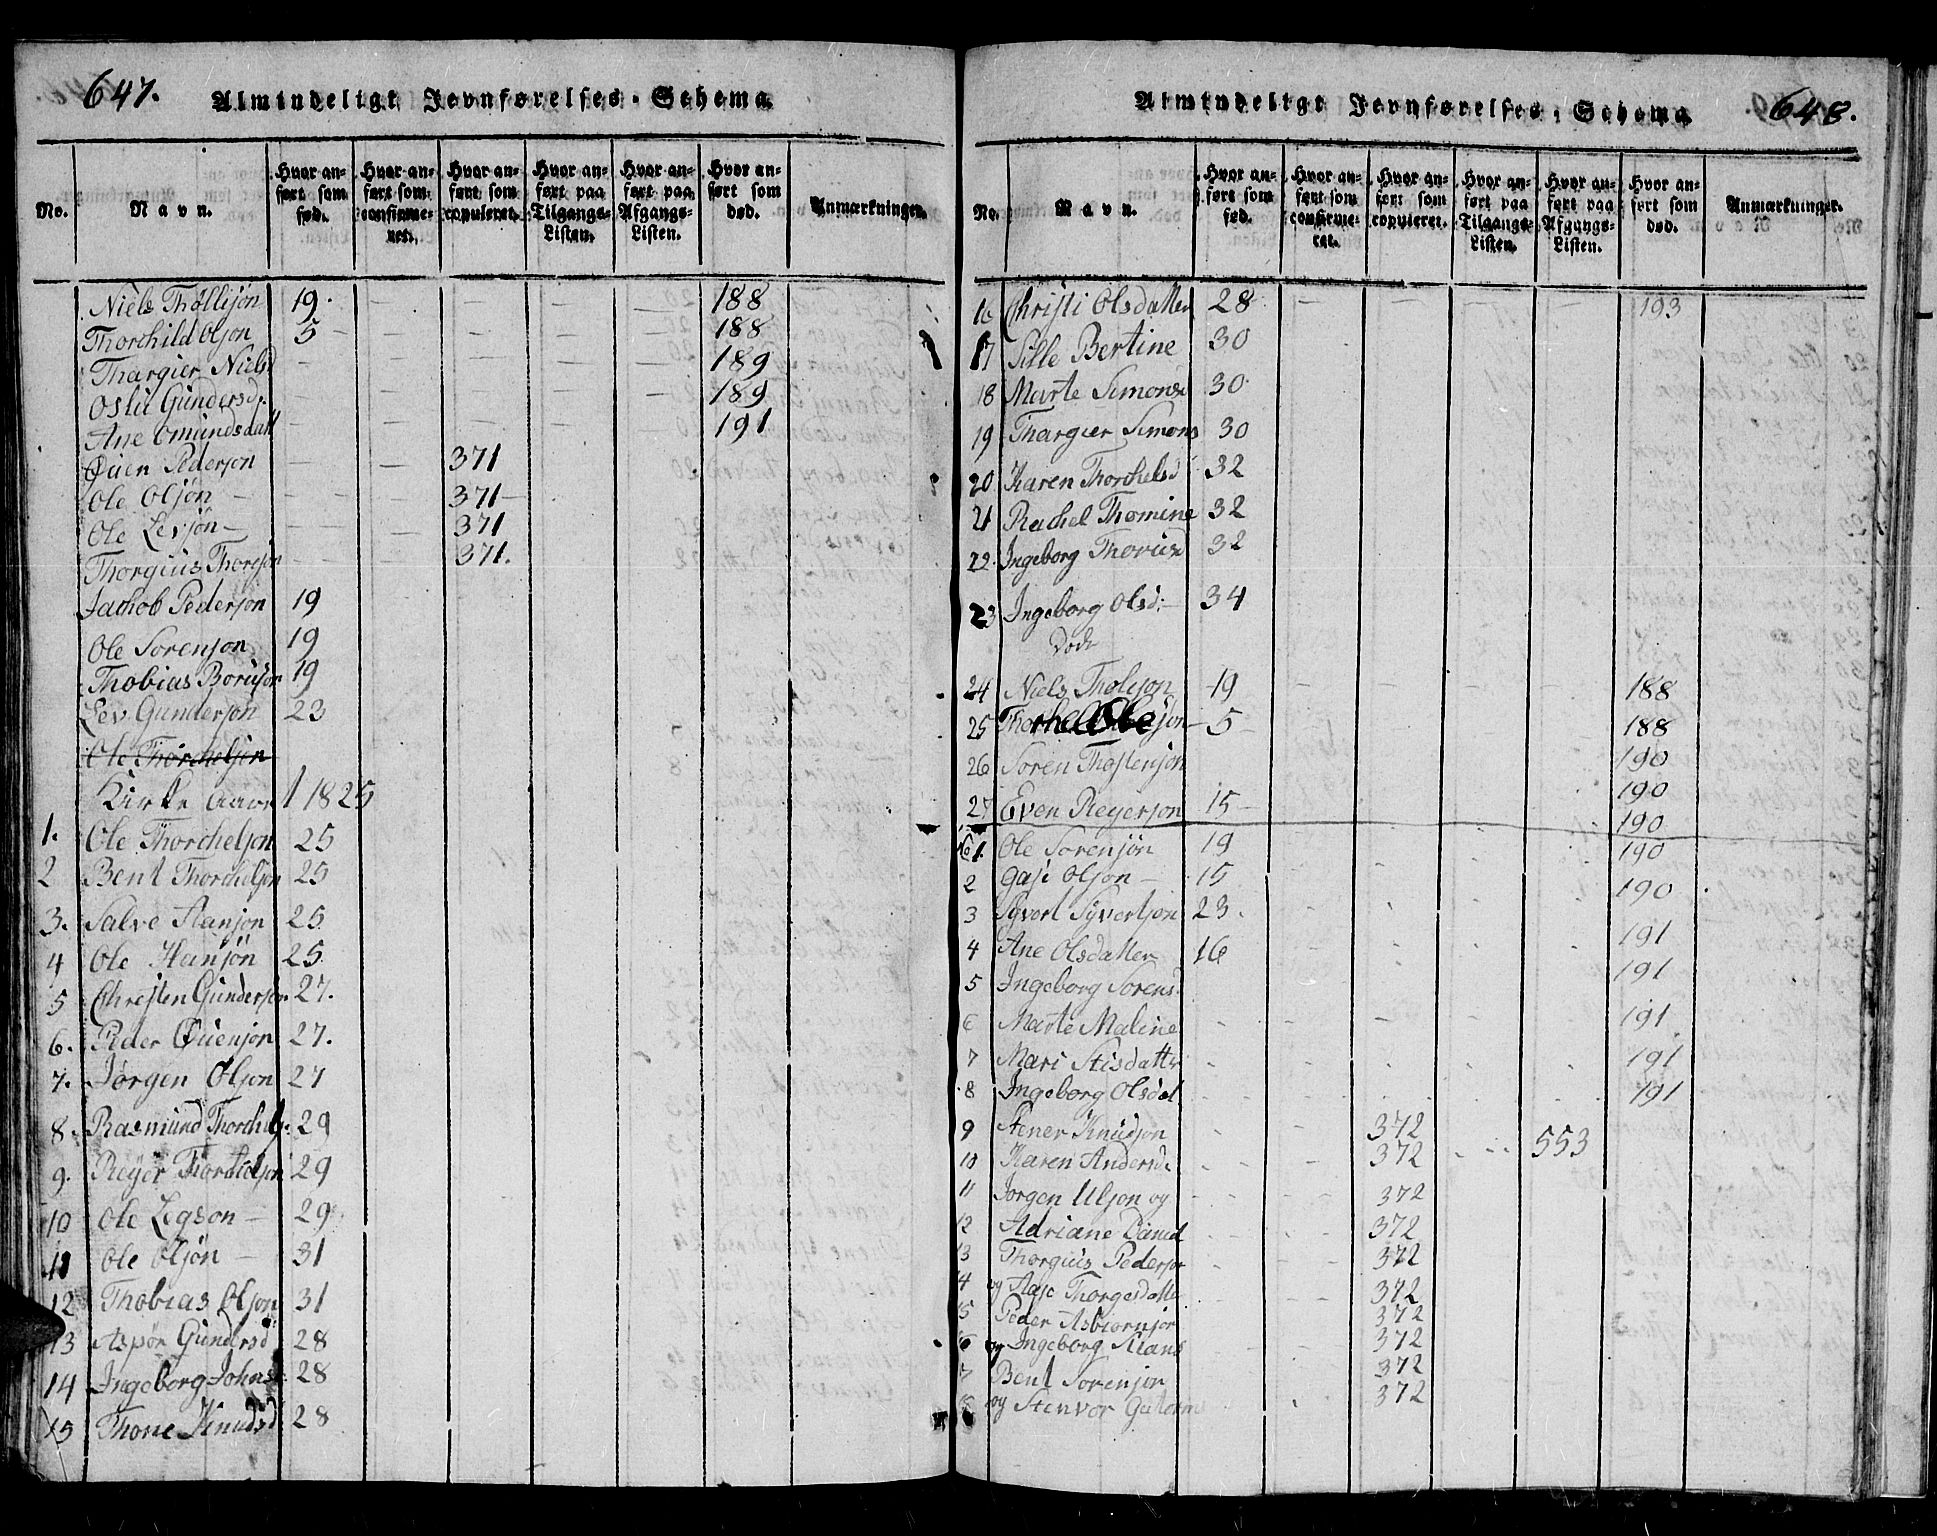 647.
Almindeligt Jevnførelses-Schema
No. Navn. Hvor anført som fød. Hvor anført som confirmeret. Hvor anført som copuleret. Hvor anført paa Tilgangs-Listen. Hvor anført paa Afgangs-Listen. Hvor anført som død. Anmærkninger.
Niels Thollisøn 19. 188
Thorchild Olsøn 5 188
Thargier Nielsd 189
Oslu Gundersd. 189
Ane Omundsdatt 191
Øuen Pedersøn 371
Ole Olsøn 371
Ole Levsøn 371
Thorgius Thorsøn 371.
Jachob Pedersøn 19
Ole Sorensøn 19
Thobias Boruson 19
Lev Gundersøn 23
Ole Thorchelsøn
Kirke Aaret 1825
1. Ole Thorchelsøn 25
2 Bent Thorchelsøn 25
3. Salve Aansøn 25
4 Ole Hansøn 25.
5 Christen Gundersøn 27.
6. Peder Øuensøn 27.
7. Jørgen Olsøn 27
8. Rasmund Thorchels. 29
9. Reyer Thorchelsøn 29
10 Ole Legson 29
11 Ole Olsøn 31
12 Thobias Olsøn 31
13 Aspør Gundersd 28
14 Ingeborg Johnsd. 28
15 Thone Knudsd 28
Almindeligt Jevnførelses-Schema
648.
No. Navn. Hvor anført som fød. Hvor anført som confirmeret. Hvor anført som copuleret. Hvor anført paa Tilgangs-Listen. Hvor anført paa Afgangs-Listen. Hvor anført som død. Anmærkninger.
16 Christi Olsdatter 28 193
17 Sille Bertine 30
18 Marte Simonsd 30
19 Thargier Simons 30
20 Karen Thorchelsd 32
21 Rachel Thomine 32
22. Ingeborg Thoviusd 32
23 Ingeborg Olsd. 34
Døde
24 Niels Tholison 19 188
25 Thorchel Olesøn 5 188
26 Soren Thostensøn 190
27 Even Reyersøn 15 190
190
No 1. Ole Sorensøn 19 190
2 Gasi Olsøn 15 190
3 Syvert Syvertsøn 23.
4 Ane Olsdatter 16 191
5 Ingeborg Sorensd. 191
6 Marte Maline 191
7 Mari Stisdatter 191
8 Ingeborg Olsdat 191
9 Stener Knudsøn 372
10 Karen Andersd. 372 553
11 Jorgen Ulsøn og 372
12 Adriane Daniel 372
13 Thorgius Pedersøn 372
14 og Aase Thorgesdatte 372
15 Peder Asbiornsøn 372
16 og Ingeborg Aians 372
17 Bent Sorensøn 372
18 og Stenvor Gutorms 372